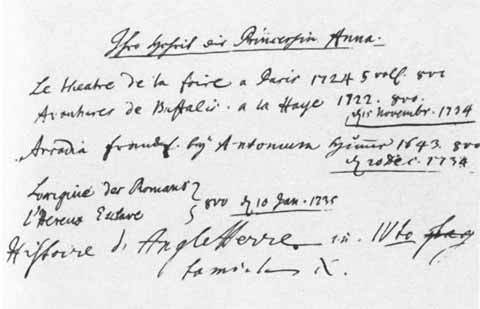 Ihro Hoheit die Princessin Anna.
Le theatre de la foire a Paris 1724 5 voll. 8vo
Avantures de Buffalis. a la Haye 1722. 8vo.
d 15 Novembr. 1734
Arcadia by Antonium 1643. 8vo
d 20 Dec. 1734
Lorigine der Romans
L'Hereux Esclave } 8vo d 10 Jan. 1735
Histoire d'AngleTerre. in IVto
X.